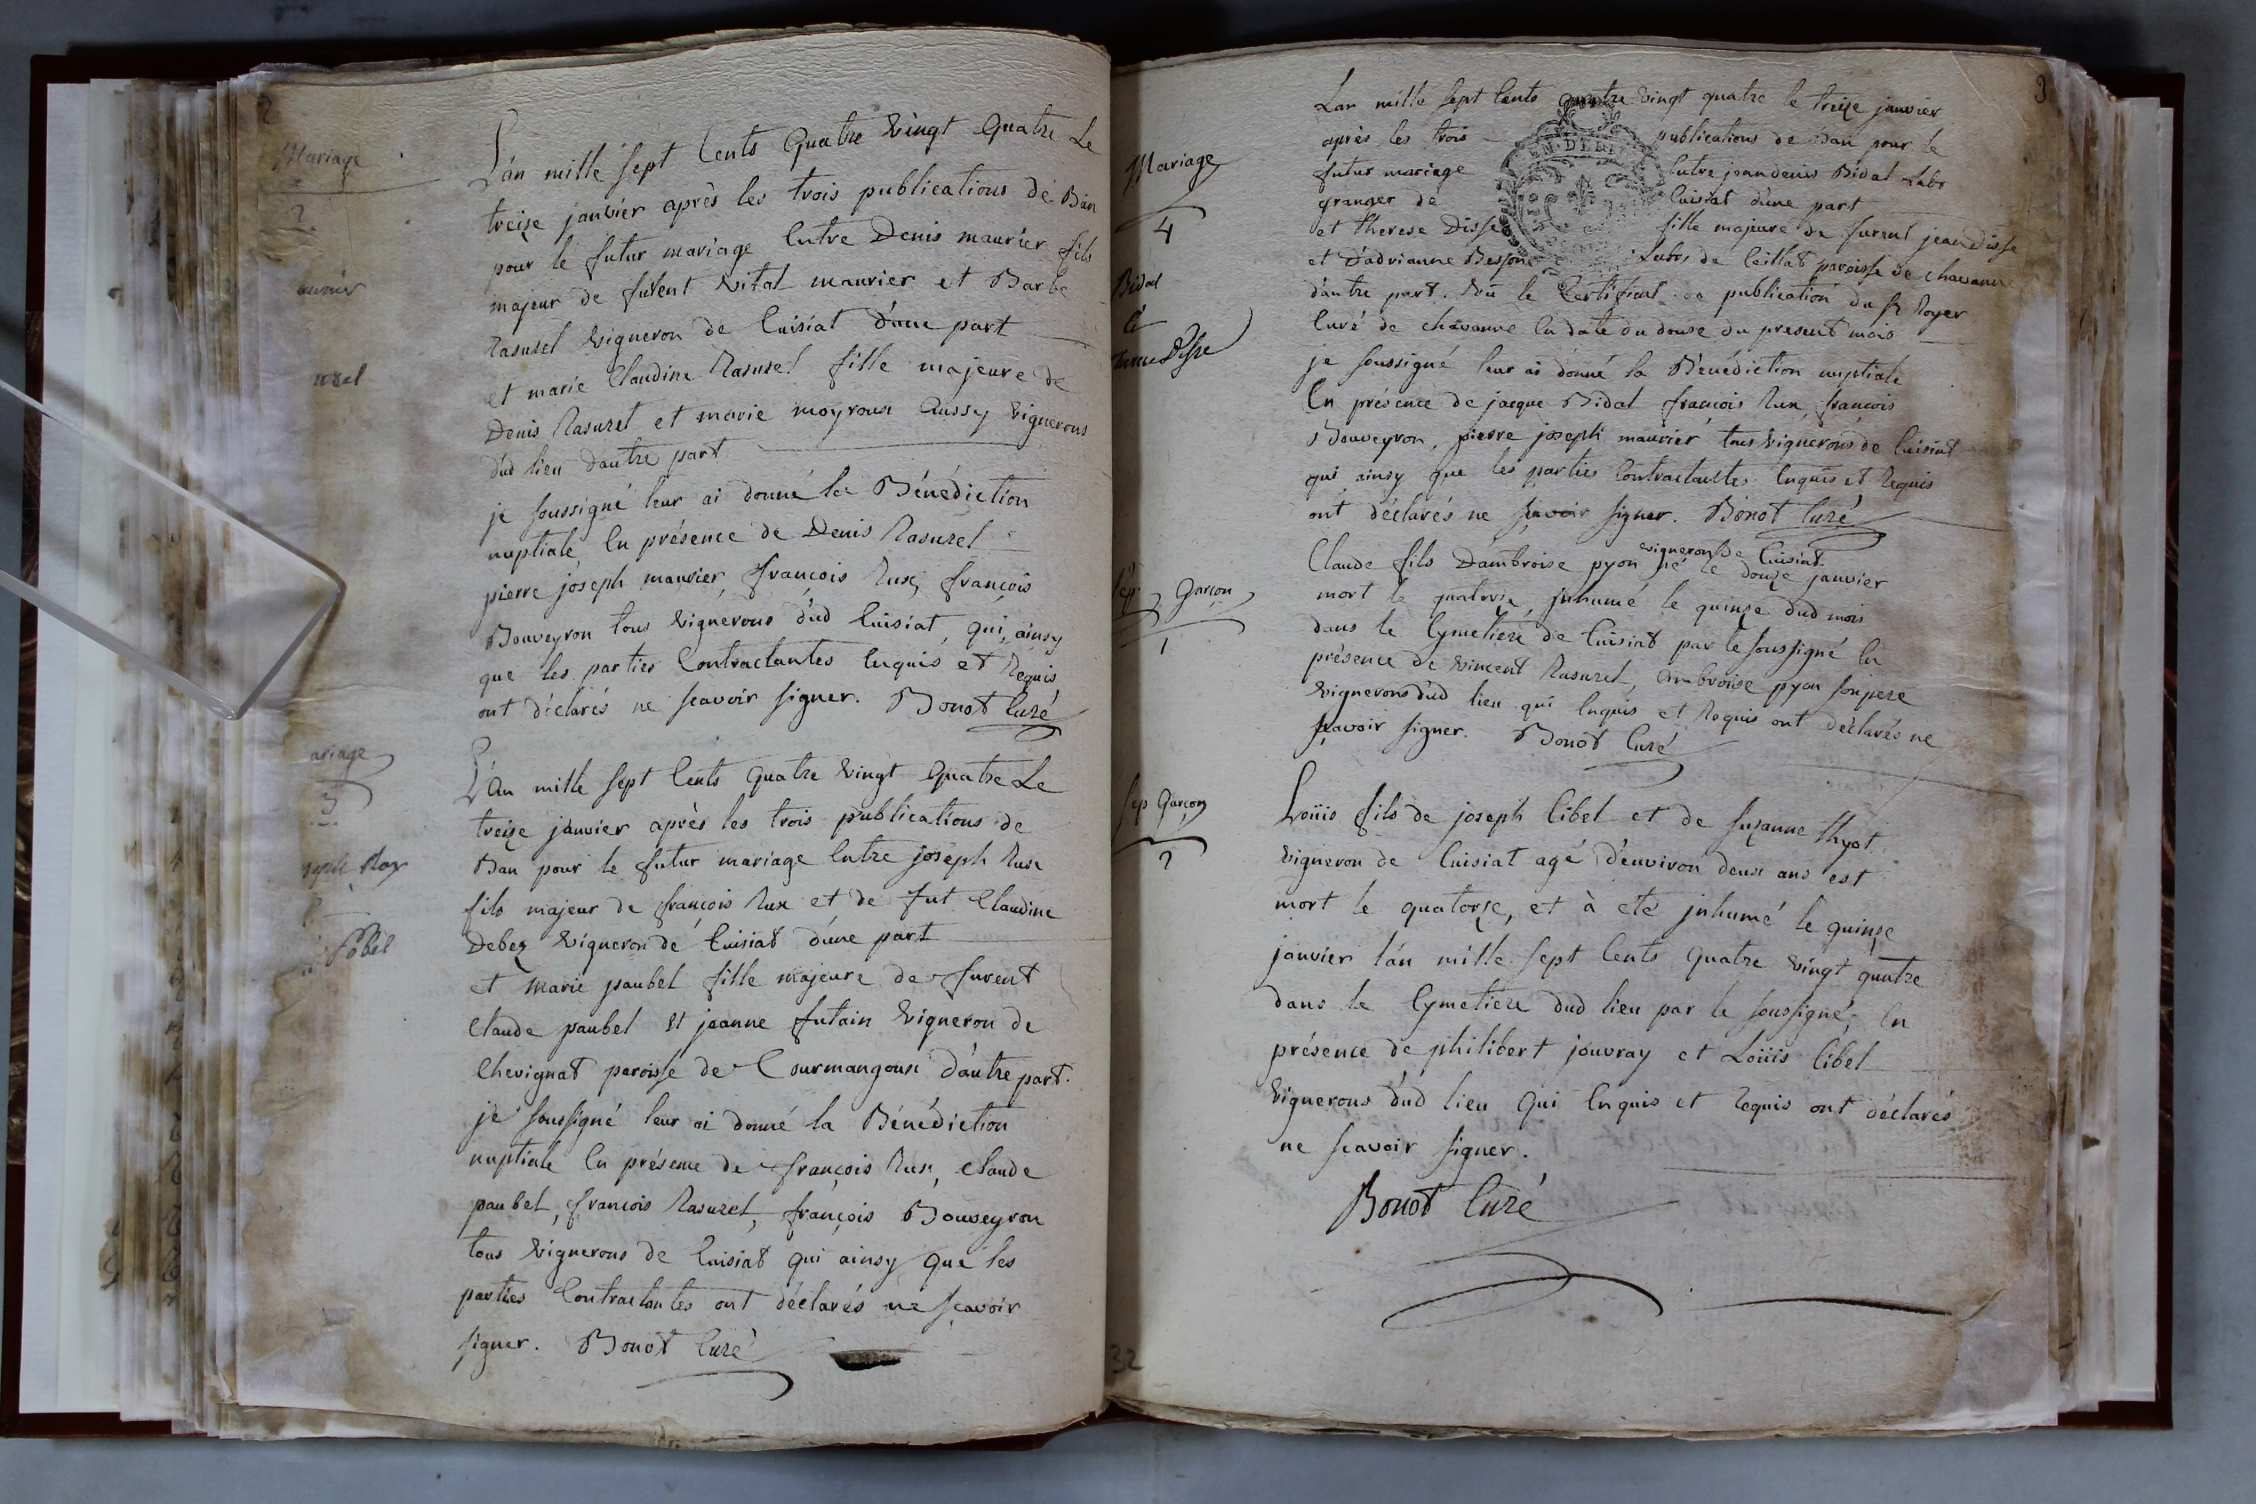 2
Mariage
2
L'an mille sept cents quatre vingt quatre le
treize janvier après les trois publications de Ban
pour le futur mariage entre Denis maurier fils
majeur de furent vital maurier et Barbe
Rasurel vigneron de Cuisiat d'une part
et marie Claudine Rasurel fille majeure de
Denis Rasurel et marie moyroux aussy vignerons
dud lieu d'autre part
je soussigné leur ai donné la Bénédiction
nuptiale en présence de Denis Rasurel
pierre joseph maurier, françois Rux, françois
Bouveyron tous vignerons d'ud Cuisiat, qui, ainsy
que les parties Contractantes enquis et Requis
ont déclarés ne scavoir signer. Bonot Curé
ariage
3
L'An mille sept Cents quatre vingt quatre Le
treize janvier après les trois publications de
Ban pour le futur mariage entre joseph Rux
fils majeur de françois Rux et de fut Claudine
Debez vigneron de Cuisiat d'une part
et marie paubel fille majeure de furent
Claude paubel et jeanne futain vigneron de
Chevignat paroisse de Courmangoux d'autre part.
je soussigné leur ai donné la Bénédiction
nuptiale en présence de françois Rux, Claude
paubel, françois Rasurel, françois Bouveyron
tous vignerons de Cuisiat qui ainsy que les
parties Contractantes ont déclarés ne scavoir
signer. Bonot Curé
3
Mariage
4
Bidal
et
Disse
L'an mille sept Cents quatre vingt quatre le treize janvier
après les trois publications de Ban pour le
futur mariage entre jean denis Bidal Labr
granger de Cuisiat d'une part
et therese Disse fille majeure de furent jean Disse
et d'adrianne Bessone Labrs de Ceillat paroisse de chavanne
d'autre part. vû le Certificat de publication du sr Royer
Curé de chavanne en date du douze du present mois
je soussigné leur ai donné la Bénédiction nuptiale
En présence de jacque Bidal françois Rux, françois
Bouveyron, pierre joseph maurier tous vignerons de Cuisiat
qui ainsy que les parties Contractantes enquis et Requis
ont déclarés ne scavoir signer. Bonot Curé
sép Garçon
1
Claude fils D'ambroise pyon vigneron de Cuisiat né le douze janvier
mort le quatorze, jnhumé le quinze dud mois
dans le Cymetiere de Cuisiat par le soussigné en
présence de vincent Rasurel, Ambroise pyon son pere
vignerons d'ud lieu qui enquis et Requis ont déclarés ne
scavoir signer. Bonot Curé
sep Garçon
2
Loüis fils de joseph Cibel et de suzanne thyot
vigneron de Cuisiat agé d'environ deux ans est
mort le quatorze, et à eté jnhumé le quinze
janvier l'an mille sept Cents quatre vingt quatre
dans le Cymetiere dud lieu par le soussigné, en
présence de philibert jouvray et Loüis Cibel
vignerons d'ud lieu qui enquis et requis ont déclarés
ne scavoir signer.
Bonot Curé
32